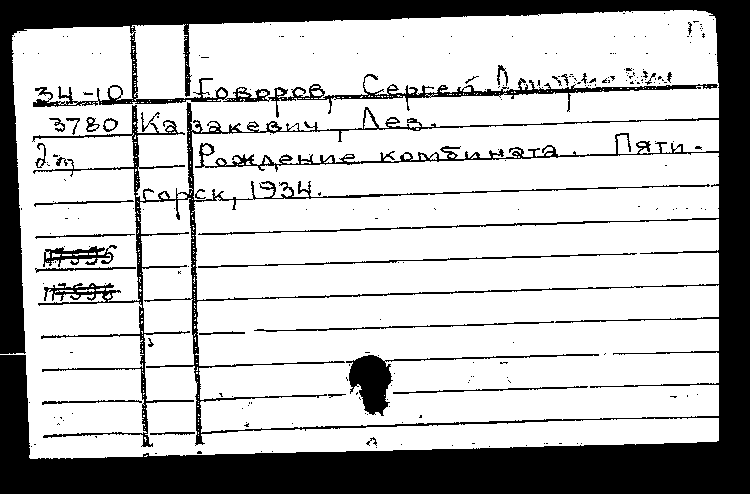 П
34-10 Говоров, Сергей Дмитриевич
3780 Казакевич, Лев.
2 т Рождение комбината. Пяти-
горск, 1934.
П7595
П7596